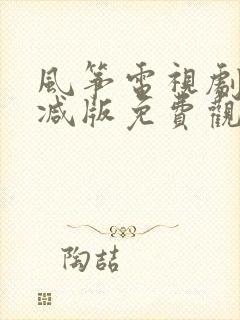 風筝電視劇
减版免費觀
陶喆